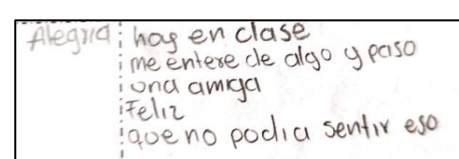 Alegria hoy en clase
me entere de algo y paso
una amiga
Feliz
que no podia sentir eso